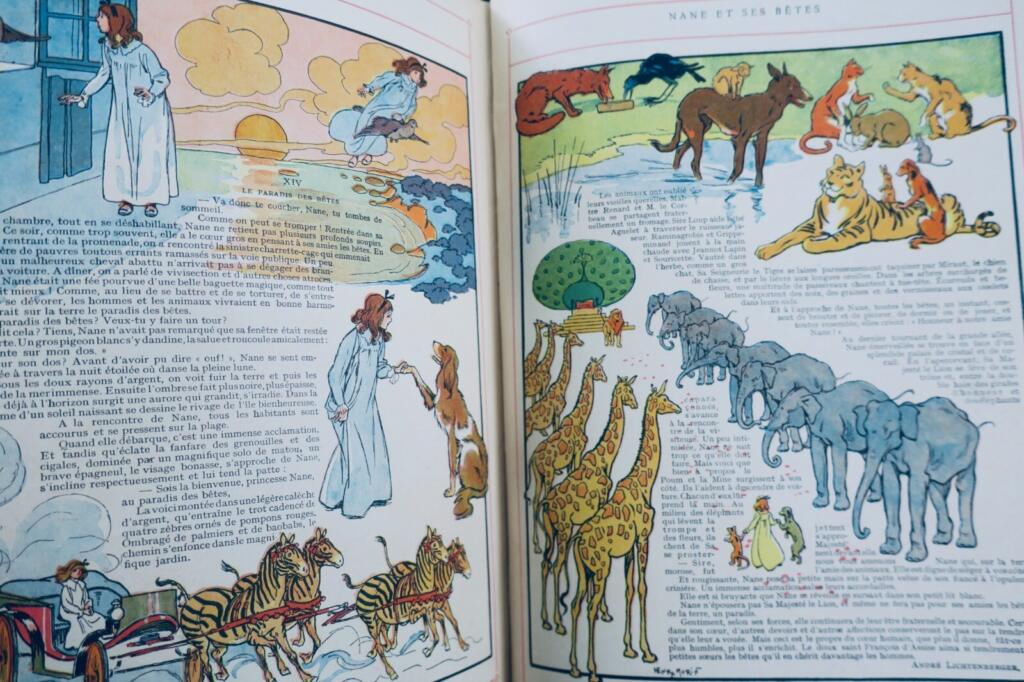 XIV
LE PARADIS DES BÊTES
— Va donc te coucher, Nane, tu tombes de
sommeil.
Comme on peut se tromper ! Rentrée dans sa
chambre, tout en se déshabillant, Nane ne retient pas plusieurs profonds soupirs.
Ce soir, comme trop souvent, elle a le cœur gros en pensant à ses amies les bêtes. En
rentrant de la promenade, on a rencontré la sinistre charrette-cage qui emmenait
ère de pauvres toutous errants ramassés sur la voie publique. Un peu
un malheureux cheval abattu n'arrivait pas à se dégager des bran-
a voiture. A dîner, on a parlé de vivisection et d'autres choses atroces.
Nane était une fée pourvue d'une belle baguette magique, comme tout
mieux ! Comme, au lieu de se battre et de se torturer, de s'entre-
se dévorer, les hommes et les animaux vivraient en bonne harmo-
rait sur la terre le paradis des bêtes.
paradis des bêtes ? Veux-tu y faire un tour ?
dit cela ? Tiens, Nane n'avait pas remarqué que sa fenêtre était restée
rte. Un gros pigeon blanc s'y dandine, la salue et roucoule amicalement :
nte sur mon dos. »
sur son dos ? Avant d'avoir pu dire « ouf! », Nane se sent em-
ée à travers la nuit étoilée où danse la pleine lune.
ous les doux rayons d'argent, on voit fuir la terre et puis les
de la mer immense. Ensuite l'ombre se fait plus noire, plus épaisse,
déjà à l'horizon surgit une aurore qui grandit, s'irradie. Dans la
me d'un soleil naissant se dessine le rivage de l'île bienheureuse.
A la rencontre de Nane, tous les habitants sont
accourus et se pressent sur la plage.
Quand elle débarque, c'est une immense acclamation.
Et tandis qu'éclate la fanfare des grenouilles et des
cigales, dominée par un magnifique solo de matou, un
brave épagneul, le visage bonasse, s'approche de Nane,
s'incline respectueusement et lui tend la patte :
— Sois la bienvenue, princesse Nane,
au paradis des bêtes.
La voici montée dans une légère calèche
d'argent, qu'entraîne le trot cadencé de
quatre zèbres ornés de pompons rouges.
Ombragé de palmiers et de baobabs, le
chemin s'enfonce dans le magni-
fique jardin.
NANE ET SES BÊTES
Les animaux ont oublié
leurs vieilles querelles. Maî-
tre Renard et M. le Cor-
beau se partagent frater-
nellement un fromage. Sire Loup aide bébé
Agnelet à traverser le ruisseau ja-
seur. Raminagrobis et Grippe-
minaud jouent à la main
chaude avec Jeannot Lapin
et Souricette. Vautré dans
l'herbe, comme un gros
chat, Sa Seigneurie le Tigre se laisse paresseusement taquiner par Miraut, le chien
de chasse, et par le lièvre aux longues oreilles. Dans les arbres surchargés de
une multitude de passereaux chantent à
lettes apportent des noix, des graines et des
dans leurs nids.
Et à l'approche de Nane, les bêtes, un instant, ces-
sent de brouter et de picorer, de dormir ou de jouer, et
toutes ensemble, elles crient : « Honneur à notre amie
Nane ! »
Au dernier tournant de la grande allée,
Nane émerveillée se trouve en face d'un
splendide palais de
de l'apercevoir, Sa Ma-
jesté le Lion se lève de son
trône, où, entre la dou-
ble haie des girafes
d'honneur et
des éléphants
capara-
çonnés,
s'avance
à la rencon-
tre de la vi-
siteuse. Un peu inti-
midée, Nane ne sait
trop ce qu'elle doit
faire. Mais voici que
bien à propos le
Poum et la Mine surgissent à son
côté. Ils l'aident à descendre de voi-
ture. Chacun d'eux lui
prend la main. Au
milieu des éléphants
qui lèvent la
trompe et
des fleurs, ils
chent de Sa
se proster-
— Sire,
morose, fut
jettent
s'appro-
Majesté
nent :
nous vous amenons Nane qui, sur la terre
l'amie des animaux. Elle est digne de siéger à vos côtés.
Et rougissante, Nane pose sa petite main sur la patte velue de son fiancé à l'opulente
crinière. Une immense acclamation salue leurs accordailles.
Elle est si bruyante que Nane se réveille en sursaut dans son petit lit blanc.
Nane n'épousera pas Sa Majesté le Lion, et même ne fera pas pour ses amies les bêtes
de la terre, un paradis.
Gentiment, selon ses forces, elle continuera de leur être fraternelle et secourable. Cer
dans son cœur, d'autres devoirs et d'autres affections conserveront le pas sur la tendre
qu'elle leur a vouée. Mais ceci est le propre du cœur humain, que plus il aime, fût-ce
plus humbles, plus il s'enrichit. Le doux saint François d'Assise aima si tendrement
petites sœurs les bêtes qu'il en chérit davantage les hommes.
ANDRÉ LICHTENBERGER.